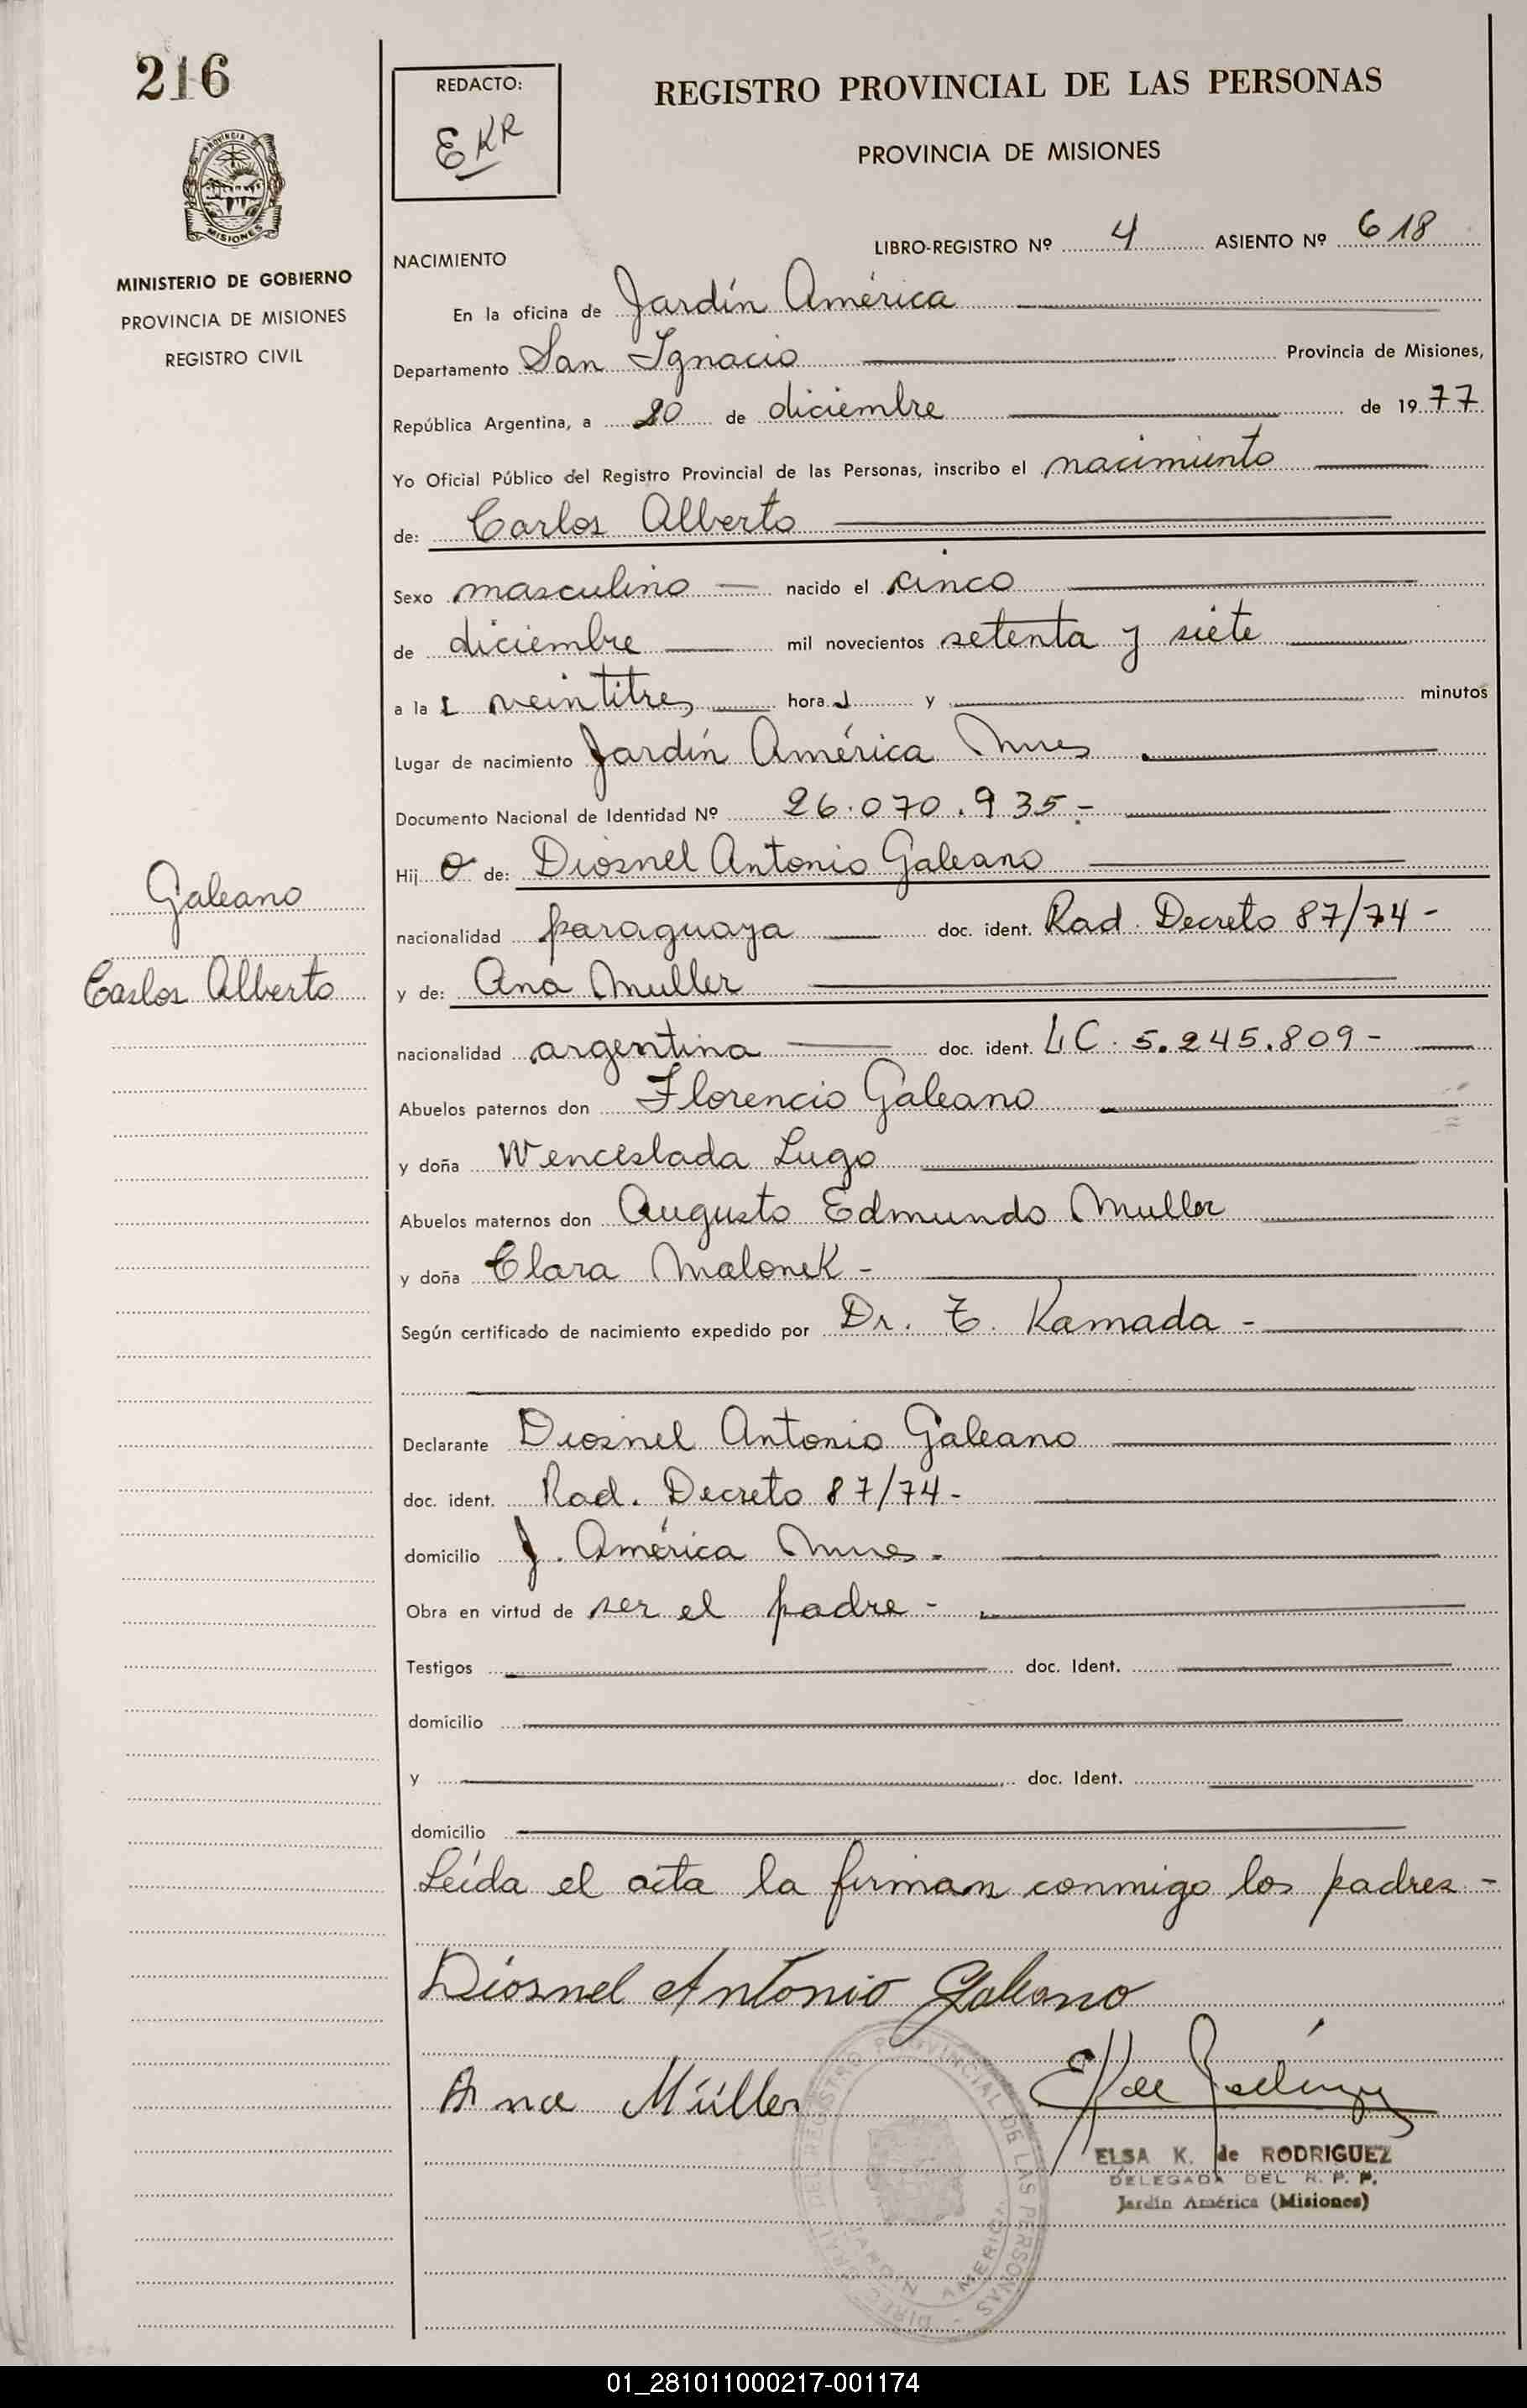 216
REDACTO:
EKR
REGISTRO PROVINCIAL DE LAS PERSONAS
PROVINCIA DE MISIONES
PROVINCIA
MISIONES
MINISTERIO DE GOBIERNO
PROVINCIA DE MISIONES
REGISTRO CIVIL
LIBRO-REGISTRO Nº 4 ASIENTO Nº 618
NACIMIENTO
En la oficina de Jardín América
Departamento San Ignacio Provincia de Misiones,
República Argentina, a 20 de diciembre de 1977
Yo Oficial Público del Registro Provincial de las Personas, inscribo el nacimiento
de: Carlos Alberto
Sexo masculino nacido el cinco
de diciembre mil novecientos setenta y siete
a la s veintitres hora s y minutos
Lugar de nacimiento Jardín América Mnes
Documento Nacional de Identidad Nº 26.070.935-
Hij o de: Diosnel Antonio Galeano
nacionalidad paraguaya doc. ident. Rad. Decreto 87/74-
y de: Ana Muller
nacionalidad argentina doc. ident. LC. 5.245.809-
Abuelos paternos don Florencio Galeano
y doña Wenceslada Lugo
Abuelos maternos don Augusto Edmundo Muller
y doña Clara Malonek-
Según certificado de nacimiento expedido por Dr. T. Kamada-
Declarante Diosnel Antonio Galeano
doc. ident. Rad. Decreto 87/74-
domicilio J. América Mnes.
Obra en virtud de ser el padre-
Testigos doc. Ident.
domicilio
y doc. Ident.
domicilio
Leída el acta la firman conmigo los padres-
Diosnel Antonio Galeano
Ana Müller
ELSA K. de RODRIGUEZ
DELEGADA DEL R. P. P.
Jardín América (Misiones)
REGISTRO PROVINCIAL DE LAS PERSONAS
JARDIN AMERICA
Galeano
Carlos Alberto
01_281011000217-001174